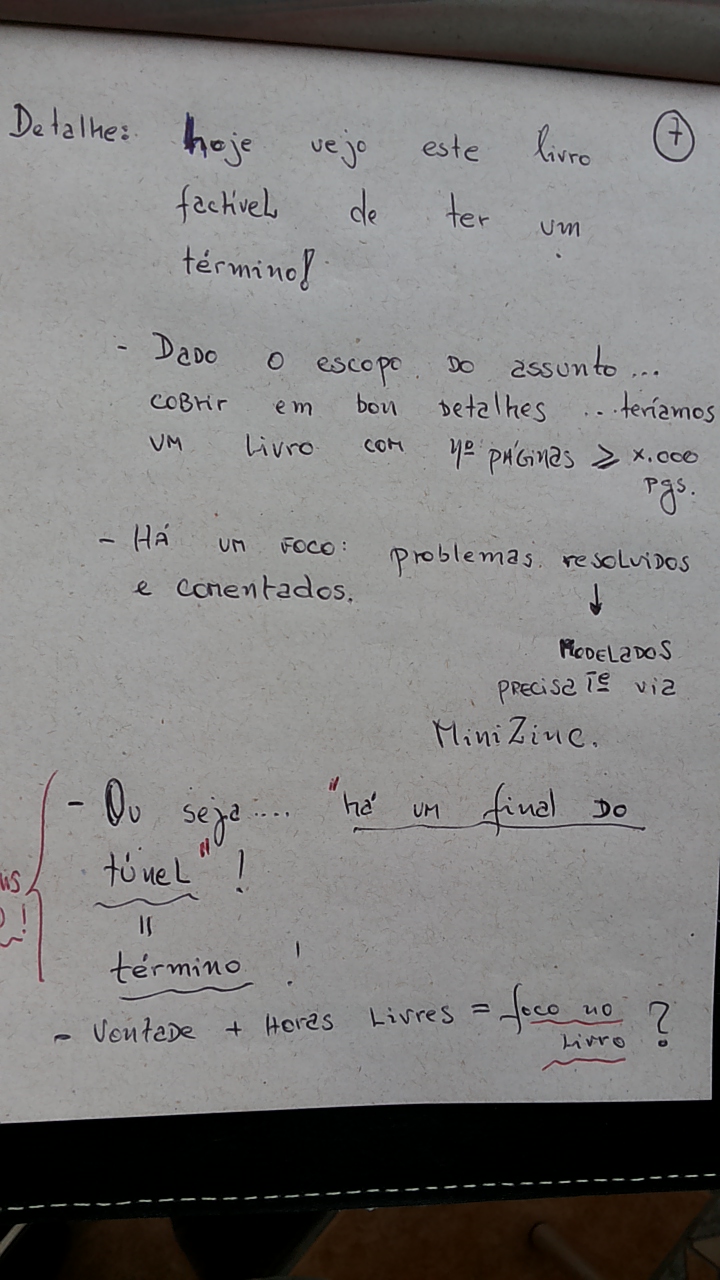 Detalhe: hoje vejo este livro
7
factível de ter um
término!
- Dado o escopo do assunto...
cobrir em bon detalhes ...teríamos
um livro com nº páginas ≥ x.000
pgs.
- Há um foco: problemas resolvidos
e comentados.
↓
Modelados
precisa Te via
MiniZinc.
- Ou seja.... "há um final do
túnel" !
=
término !
- Vontade + Horas Livres = foco no
livro ?